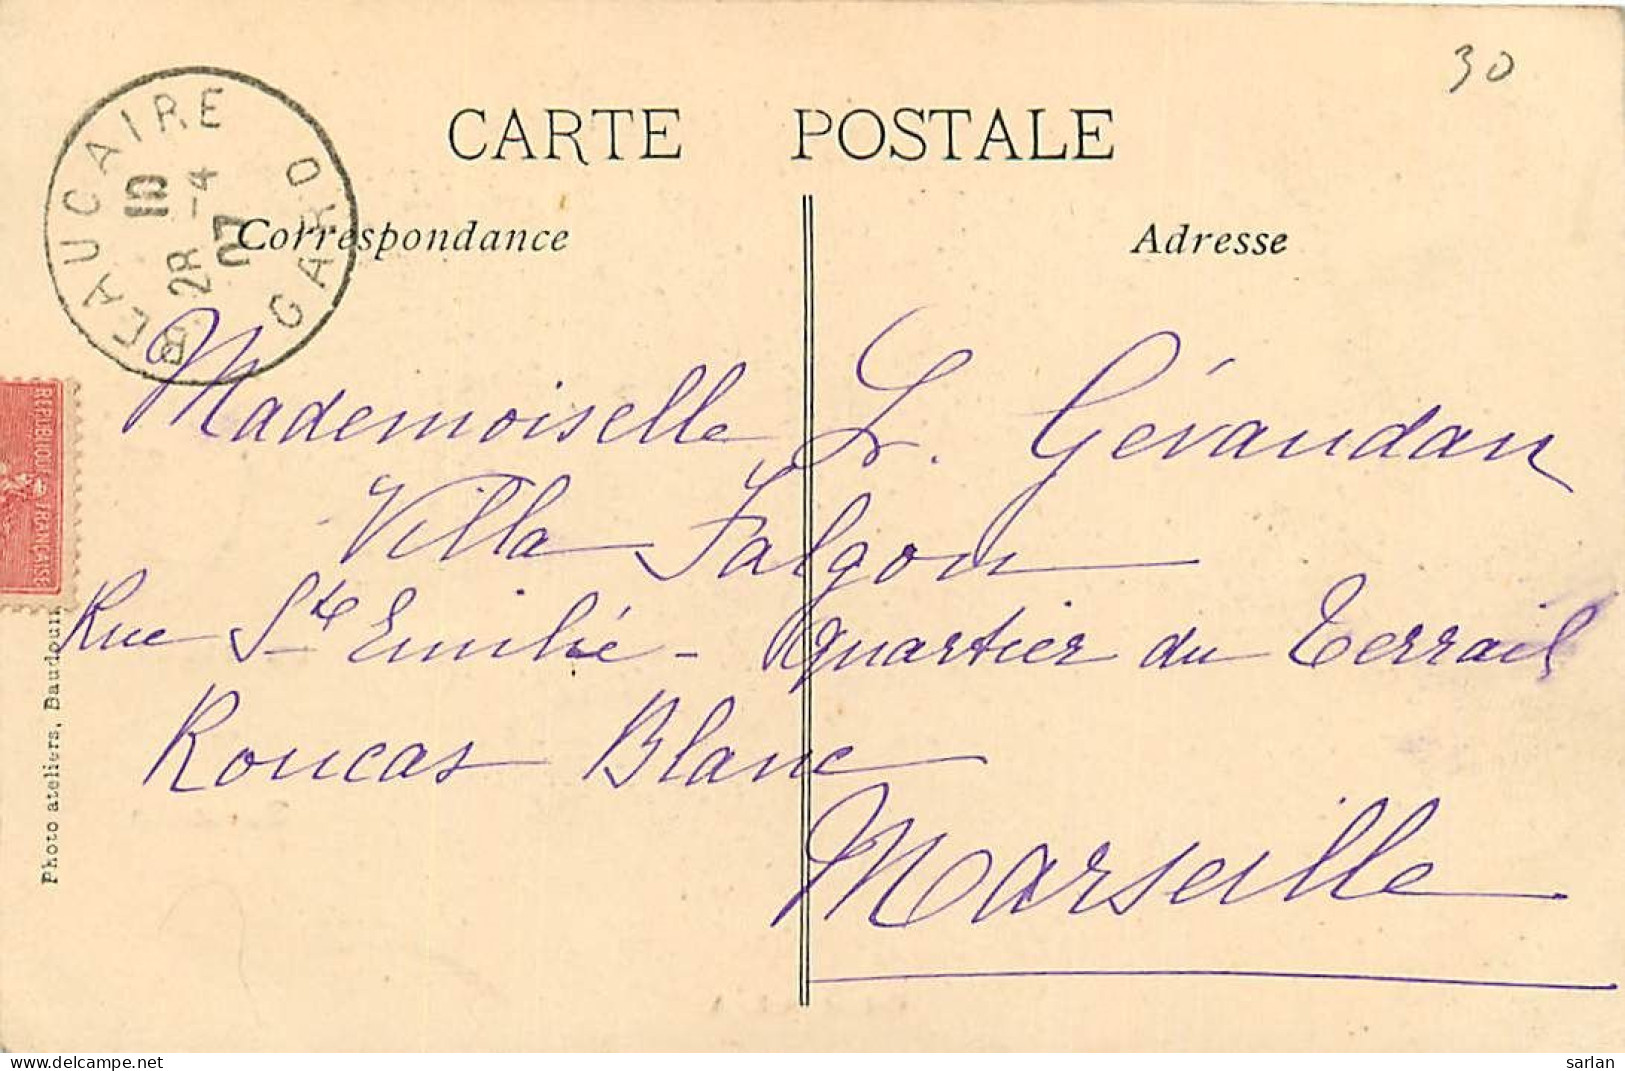 30
CARTE POSTALE
BEAUCAIRE
10
28 -4
07
GARD
Correspondance
Adresse
REPUBLIQUE FRANÇAISE
Mademoiselle L. Gévaudan
Villa Falgon
Rue Ste Emilie - quartier du Terrail
Roucas Blanc
Marseille
Photo ateliers, Baudouin
www.delcampe.net
sarlan